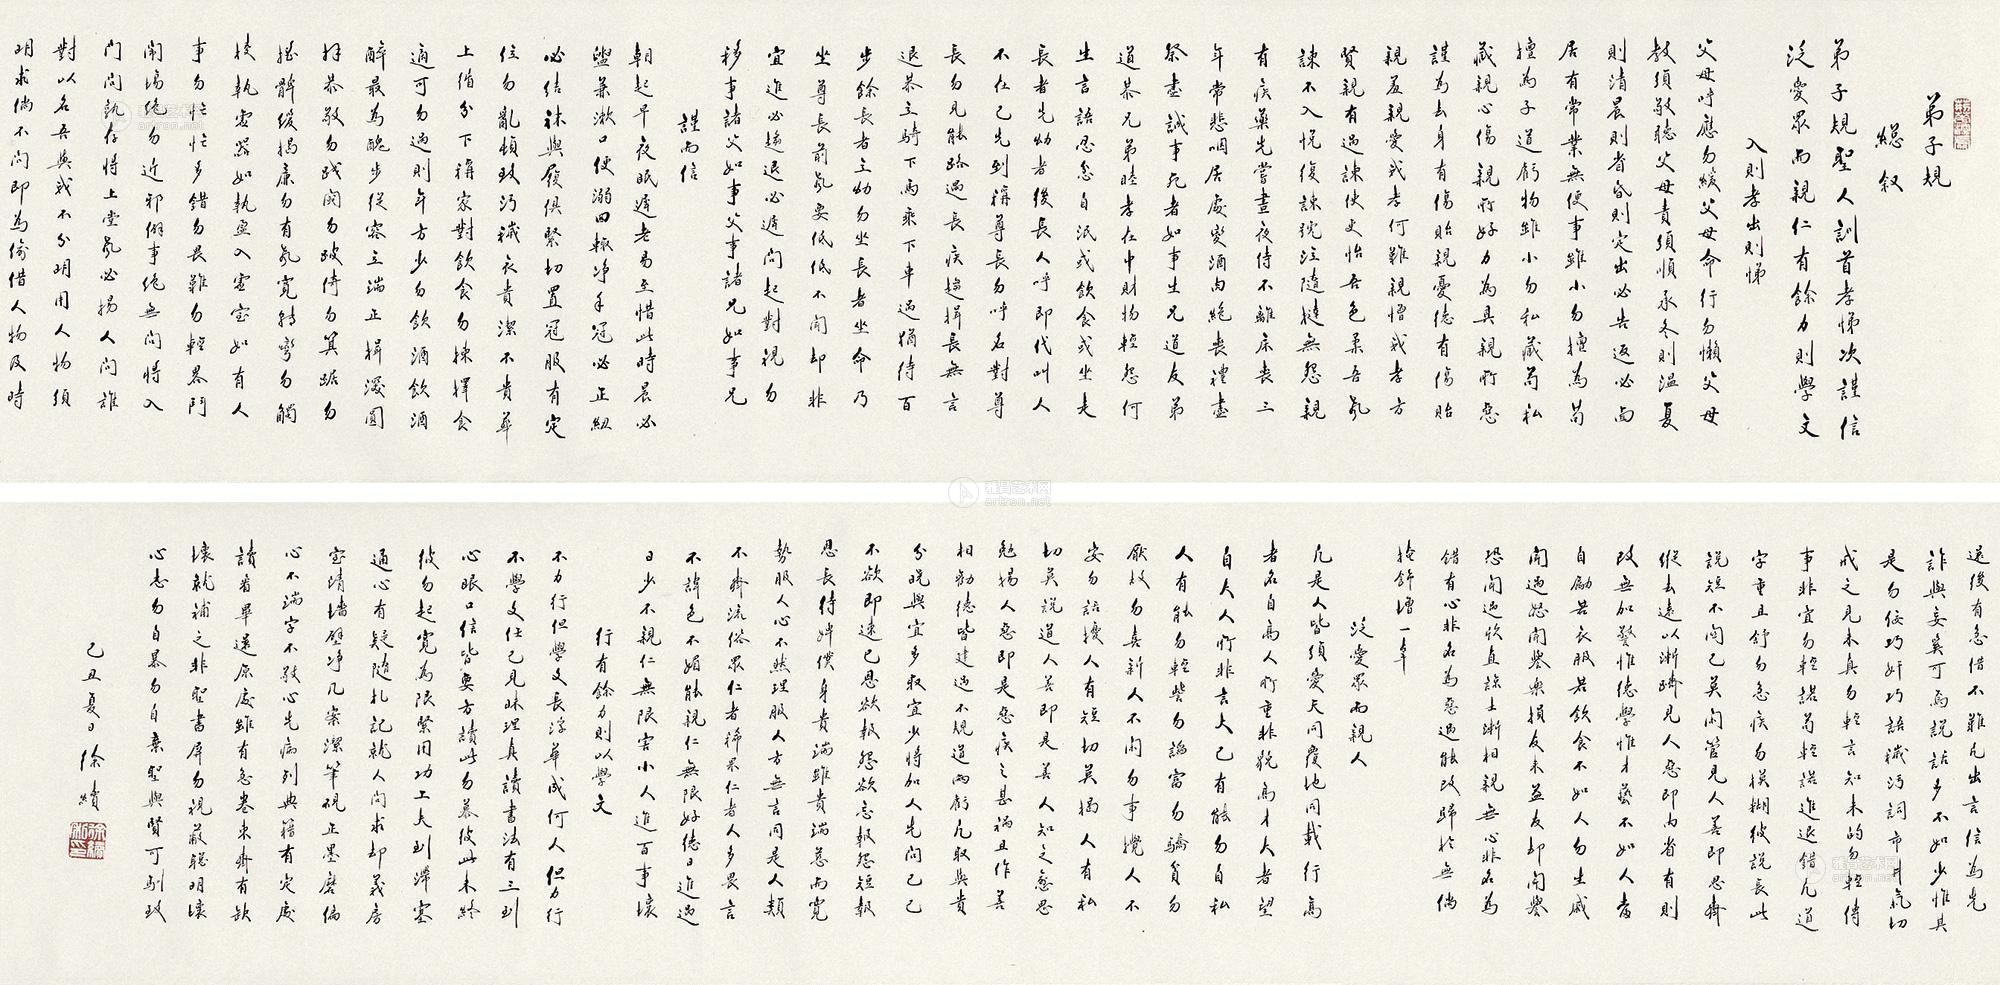 弟子規
總叙
弟子規聖人訓首孝悌次謹信
泛愛眾而親仁有餘力則學文
入則孝出則悌
父母呼應勿緩父母命行勿懶父母
教須敬聽父母責須順承冬則溫夏
則清晨則省昏則定出必告返必面
居有常業無變事雖小勿擅為苟
擅為子道虧物雖小勿私藏苟私
藏親心傷親所好力為具親所惡
謹為去身有傷貽親憂德有傷貽
親羞親愛我孝何難親憎我孝方
賢親有過諫使更怡吾色柔吾氣
諫不入悅復諫號泣隨撻無怨親
有疾藥先嘗晝夜侍不離床喪三
年常悲咽居處變酒肉絕喪禮盡
祭盡誠事死者如事生兄道友弟
道恭兄弟睦孝在中財物輕怨何
生言語忍忿自泯或飲食或坐走
長者先幼者後長人呼即代叫人
不在己先到稱尊長勿呼名對尊
長勿見能路遇長疾趨揖長無言
退恭立騎下馬乘下車過猶待百
步餘長者立幼勿坐長者坐命乃
坐尊長前聲要低低不聞却非
宜進必趨退必遲問起對視勿
移事諸父如事父事諸兄如事兄
謹而信
朝起早夜眠遲老易至惜此時晨必
盥兼漱口便溺回輒净手冠必正紐
必結襪與履俱緊切置冠服有定
位勿亂頓致污穢衣貴潔不貴華
上循分下稱家對飲食勿揀擇食
適可勿過則年方少勿飲酒飲酒
醉最為醜步從容立端正揖深圓
拜恭敬勿踐閾勿跛倚勿箕踞勿
搖髀緩揭簾勿有聲寬轉彎勿觸
棱執虛器如執盈入虛室如有人
事勿忙忙多錯勿畏難勿輕略鬥
鬧場絕勿近邪僻事絕無問將入
門問孰存將上堂聲必揚人問誰
對以名吾與我不分明用人物須
明求倘不問即為偷借人物及時
還後有急借不難凡出言信為先
詐與妄奚可焉說話多不如少惟其
是勿佞巧奸巧語穢污詞市井氣切
戒之見未真勿輕言知未的勿輕傳
事非宜勿輕諾苟輕諾進退錯凡道
字重且舒勿急疾勿模糊彼說長此
說短不關己莫閑管見人善即思齊
縱去遠以漸躋見人惡即內省有則
改無加警惟德學惟才藝不如人當
自勵若衣服若飲食不如人勿生戚
聞過怒聞譽樂損友來益友却聞譽
恐聞過欣直諒士漸相親無心非名為
錯有心非名為惡過能改歸於無倘
掩飾增一辜
泛愛眾而親人
凡是人皆須愛天同覆地同載行高
者名自高人所重非貌高才大者望
自大人所非言大己有能勿自私
人有能勿輕訾勿諂富勿驕貧勿
厭故勿喜新人不閑勿事攪人不
安勿話擾人有短切莫揭人有私
切莫說道人善即是善人知之愈思
勉揚人惡即是惡疾之甚禍且作善
相勸德皆建過不規道兩虧凡取與貴
分曉與宜多取宜少將加人先問己己
不欲即速已恩欲報怨欲忘報怨短報
恩長待婢僕身貴端雖貴端慈而寬
勢服人心不然理服人方無言同是人類
不齊流俗眾仁者稀果仁者人多畏言
不諱色不媚能親仁無限好德日進過
日少不親仁無限害小人進百事壞
行有餘力則以學文
不力行但學文長浮華成何人但力行
不學文任己見昧理真讀書法有三到
心眼口信皆要方讀此勿慕彼此未終
彼勿起寬為限緊用功工夫到滯塞
通心有疑隨札記就人問求却義房
室清墻壁净几案潔筆硯正墨磨偏
心不端字不敬心先病列典籍有定處
讀看畢還原處雖有急卷束齊有缺
壞就補之非聖書屏勿視蔽聰明壞
心志勿自暴勿自棄聖與賢可馴致
己丑夏日徐績